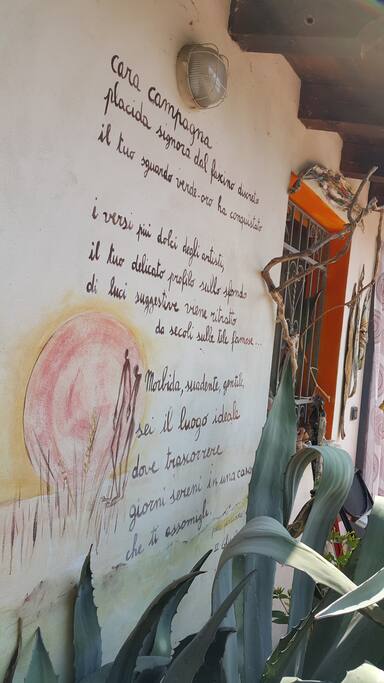 cara campagna
placida signora dal fascino discreto
il tuo sguardo verde-oro ha conquistato
i versi più dolci degli artisti,
il tuo delicato profilo sullo sfondo
di luci suggestive viene ritratto
da secoli sulle tele famose...
Morbida, suadente, gentile,
sei il luogo ideale
dove trascorrere
giorni sereni in una casa
che ti assomigli.